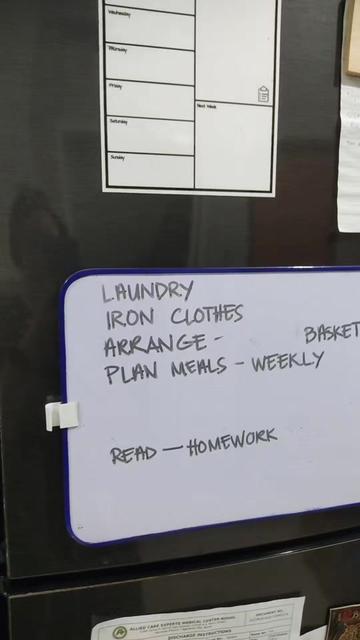 Wednesday
Thursday
Friday
Next Week
Saturday
Sunday
LAUNDRY
IRON CLOTHES
ARRANGE - BASKET
PLAN MEALS - WEEKLY
READ — HOMEWORK
ALLIED CARE EXPERTS MEDICAL CENTER
DISCHARGE INSTRUCTIONS